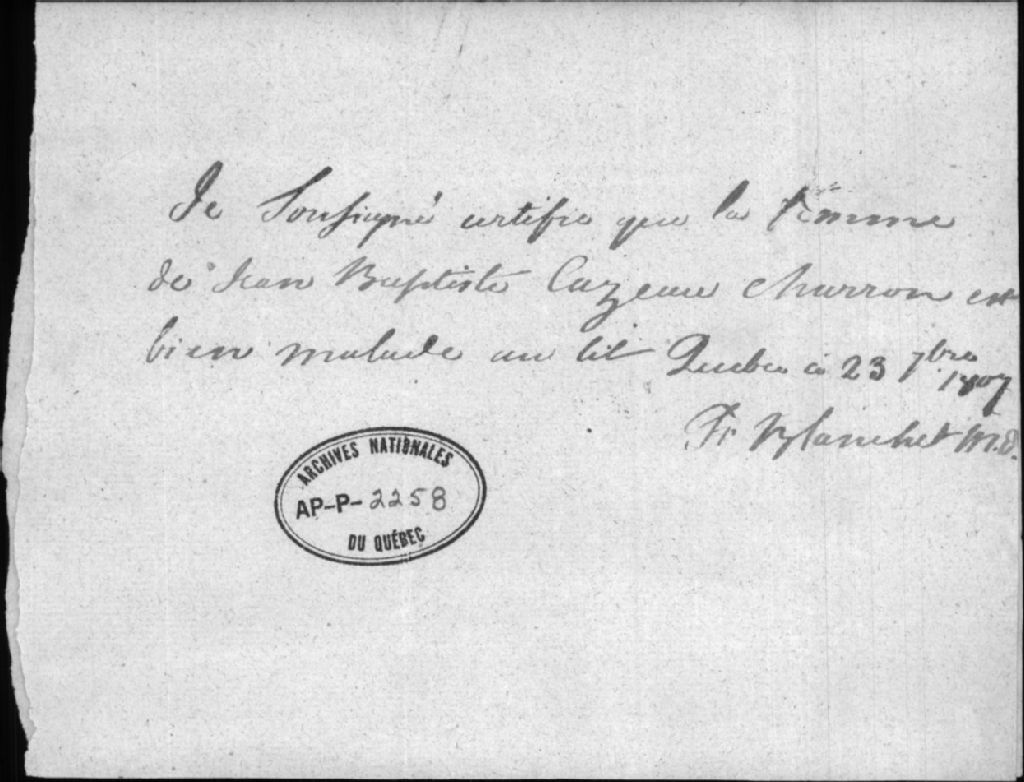 Je Sousigné certifie que la femme
de Jean Baptiste Cazeau charron est
bien malade au lit Quebec ce 23 7bre
1807
Fr Blanchet M.D.
ARCHIVES NATIONALES
AP-P-2258
DU QUÉBEC